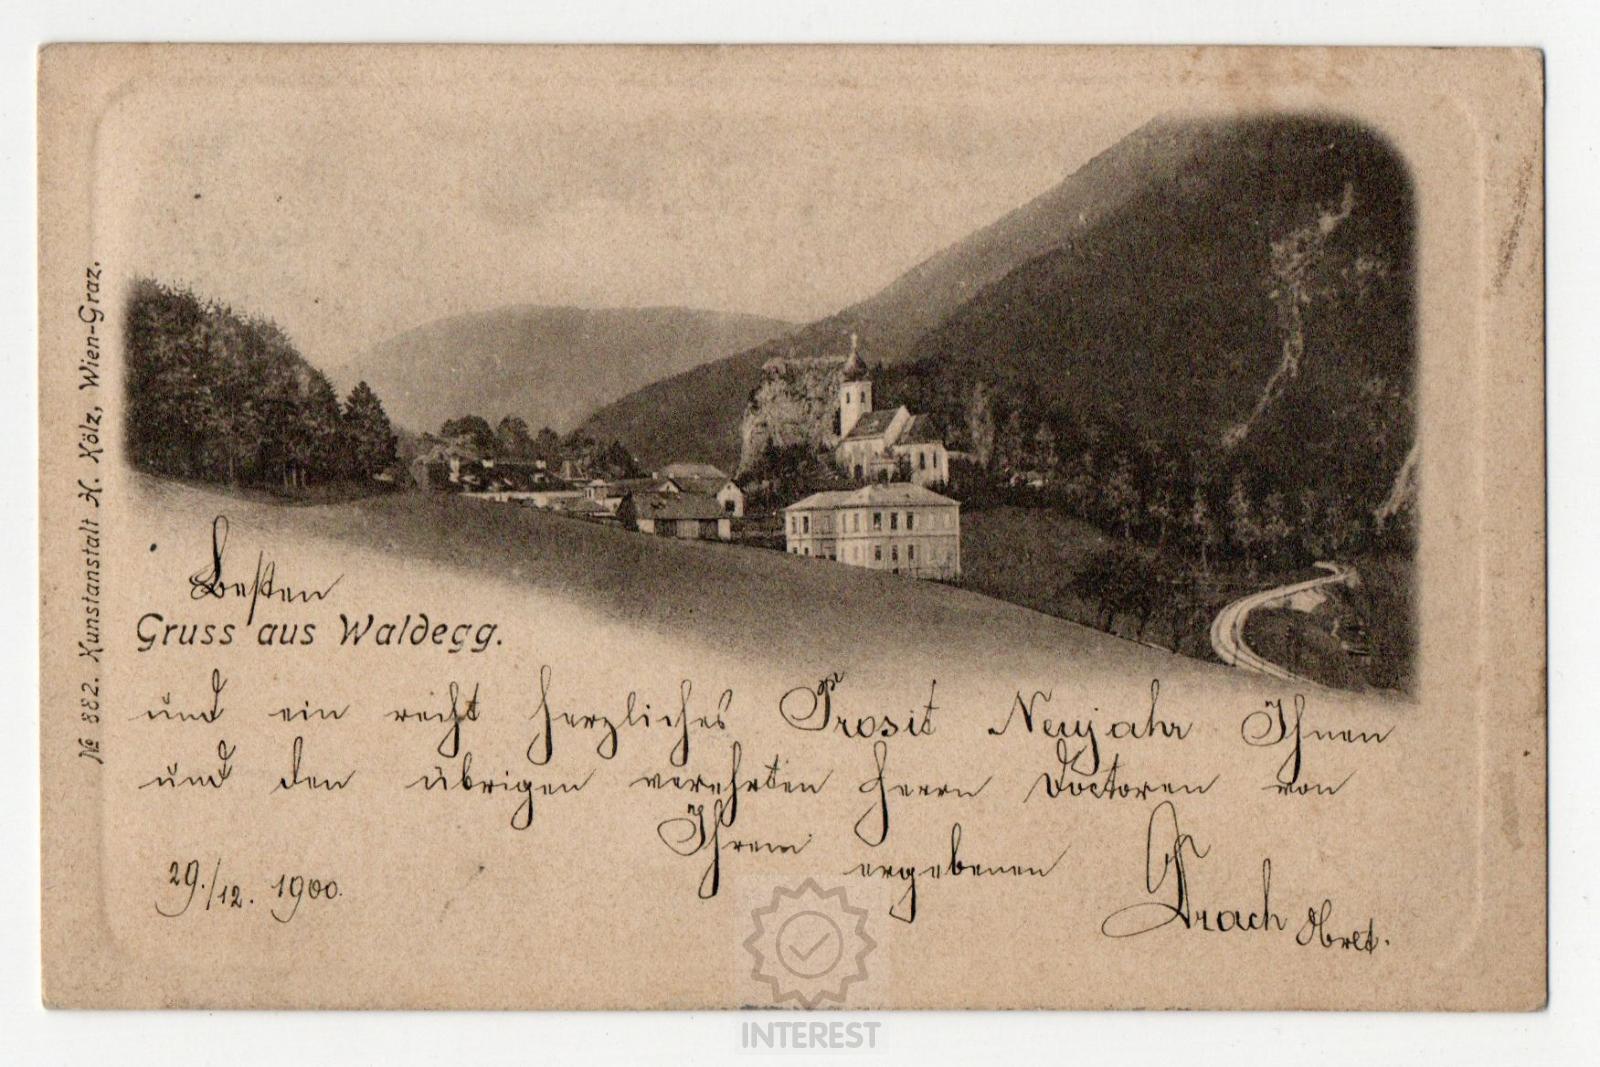 Besten
Gruss aus Waldegg.
und ein recht herzliches Prosit Neujahr Ihnen
und den übrigen verehrten Herrn Doctoren von
Ihrem ergebenen
29./12. 1900.
№ 882. Kunstanstalt H. Kölz, Wien-Graz.
INTEREST